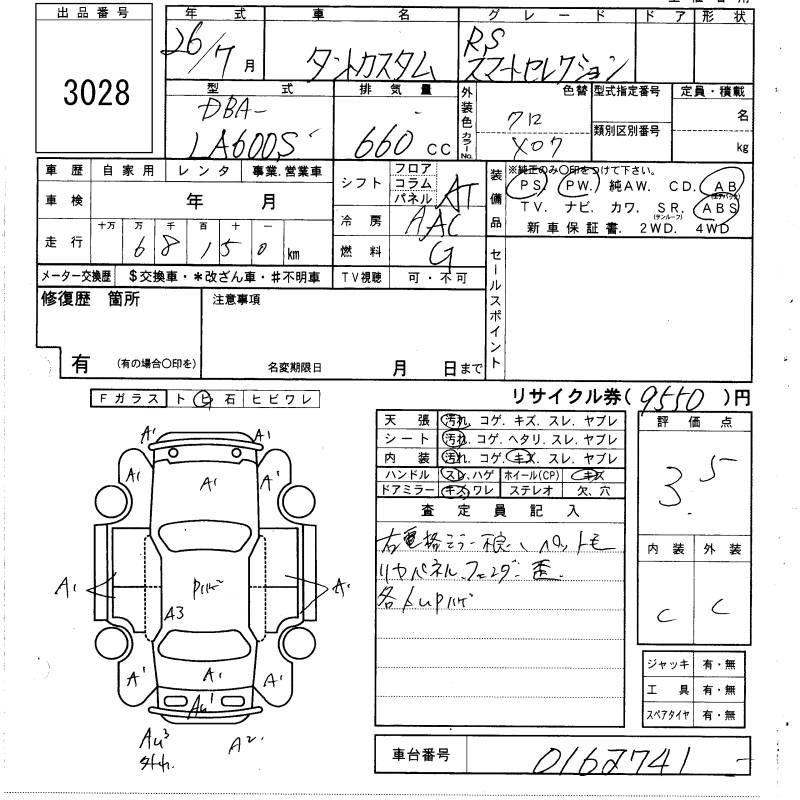 出品番号
3028
年式
26/7月
車名
タントカスタム
グレード
RS
スマートセレクション
ドア
形状
型式
DBA-
LA600S
排気量
660 CC
外装色
カラーNo.
色替
クロ
X07
型式指定番号
類別区別番号
定員・積載
名
kg
車歴
自家用
レンタ
事業.営業車
車検
年 月
走行
十万 万 千 百 十
6 8 1 5 0 km
メーター交換歴
$交換車・*改ざん車・#不明車
シフト
フロア
コラム
パネル
AT
冷房
AAC
燃料
G
TV視聴
可・不可
装備品
※純正のみ〇印をつけて下さい。
PS. PW. 純AW. CD. AB
TV. ナビ. カワ. SR. ABS
(サンルーフ)
新車保証書. 2WD. 4WD
セールスポイント
修復歴 箇所
有 (有の場合〇印を)
注意事項
名変期限日 月 日まで
リサイクル券( 9550 )円
Fガラス ト ヒ 石 ヒビワレ
A1 A1
A1 A1 A1
A1 A1
A3
A1 A1 A1
AU1
AU3 A2
天張 汚れ. コゲ. キズ. スレ. ヤブレ
シート 汚れ. コゲ. ヘタリ. スレ. ヤブレ
内装 汚れ. コゲ. キズ. スレ. ヤブレ
ハンドル スレ.ハゲ ホイール(CP) キズ
ドアミラー キズ.ワレ ステレオ 欠、穴
査定員記入
右電格ミラー不良、ペットモ
リヤパネル.フェンダー歪.
評価点
3.5
内装 外装
C C
ジャッキ 有・無
工具 有・無
スペアタイヤ 有・無
車台番号
0162741